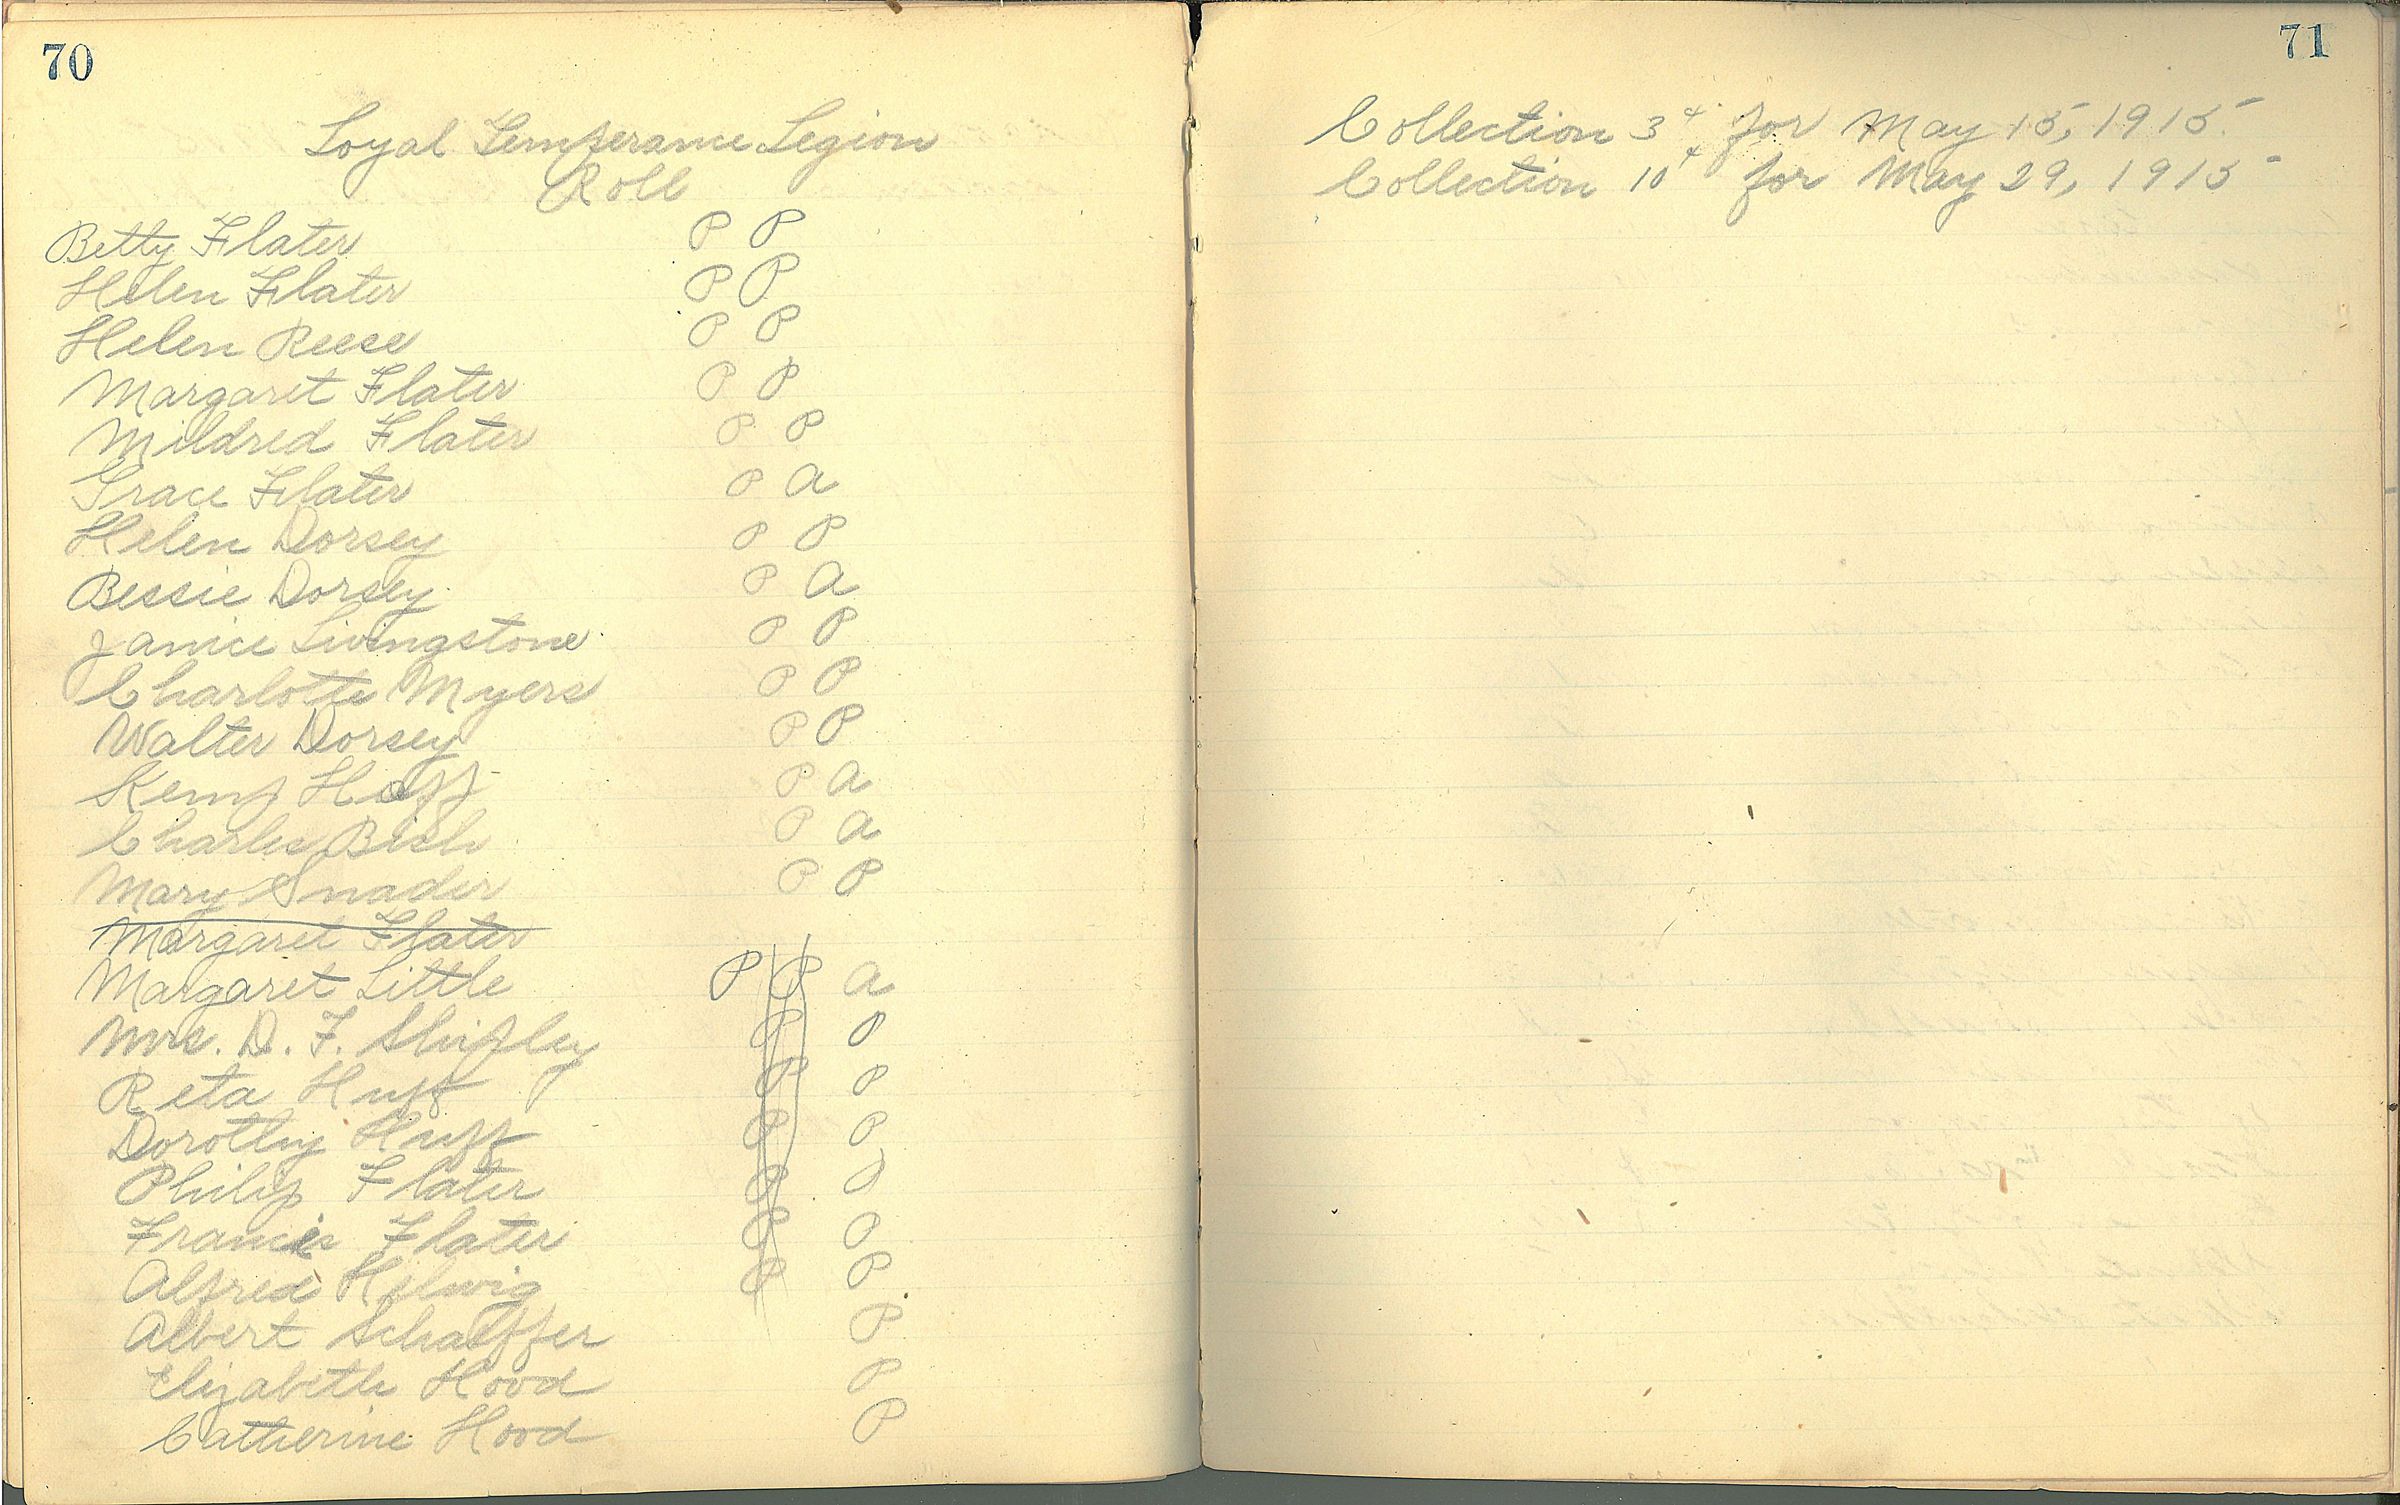 70
Loyal Temperance Legion
Roll
Betty Flater P P
Helen Flater P P
Helen Reese P P
Margaret Flater P P
Mildred Flater P P
Grace Flater P a
Helen Dorsey P P
Bessie Dorsey P a
Janice Livingstone P P
Charlotte Myers P P
Walter Dorsey P P
Kemp Hoff P a
Charles Bish P a
Mary Snader P P
Margaret Flater
Margaret Little P P a
Mrs. D. F. Shipley P P
Reta Huff P P
Dorothy Huff P P
Philip Flater P P
Francis Flater P P
Alfred Helwig P P
Albert Schaeffer P
Elizabeth Hood P
Catherine Hood P
71
Collection 3¢ for May 15, 1915.
Collection 10¢ for May 29, 1915